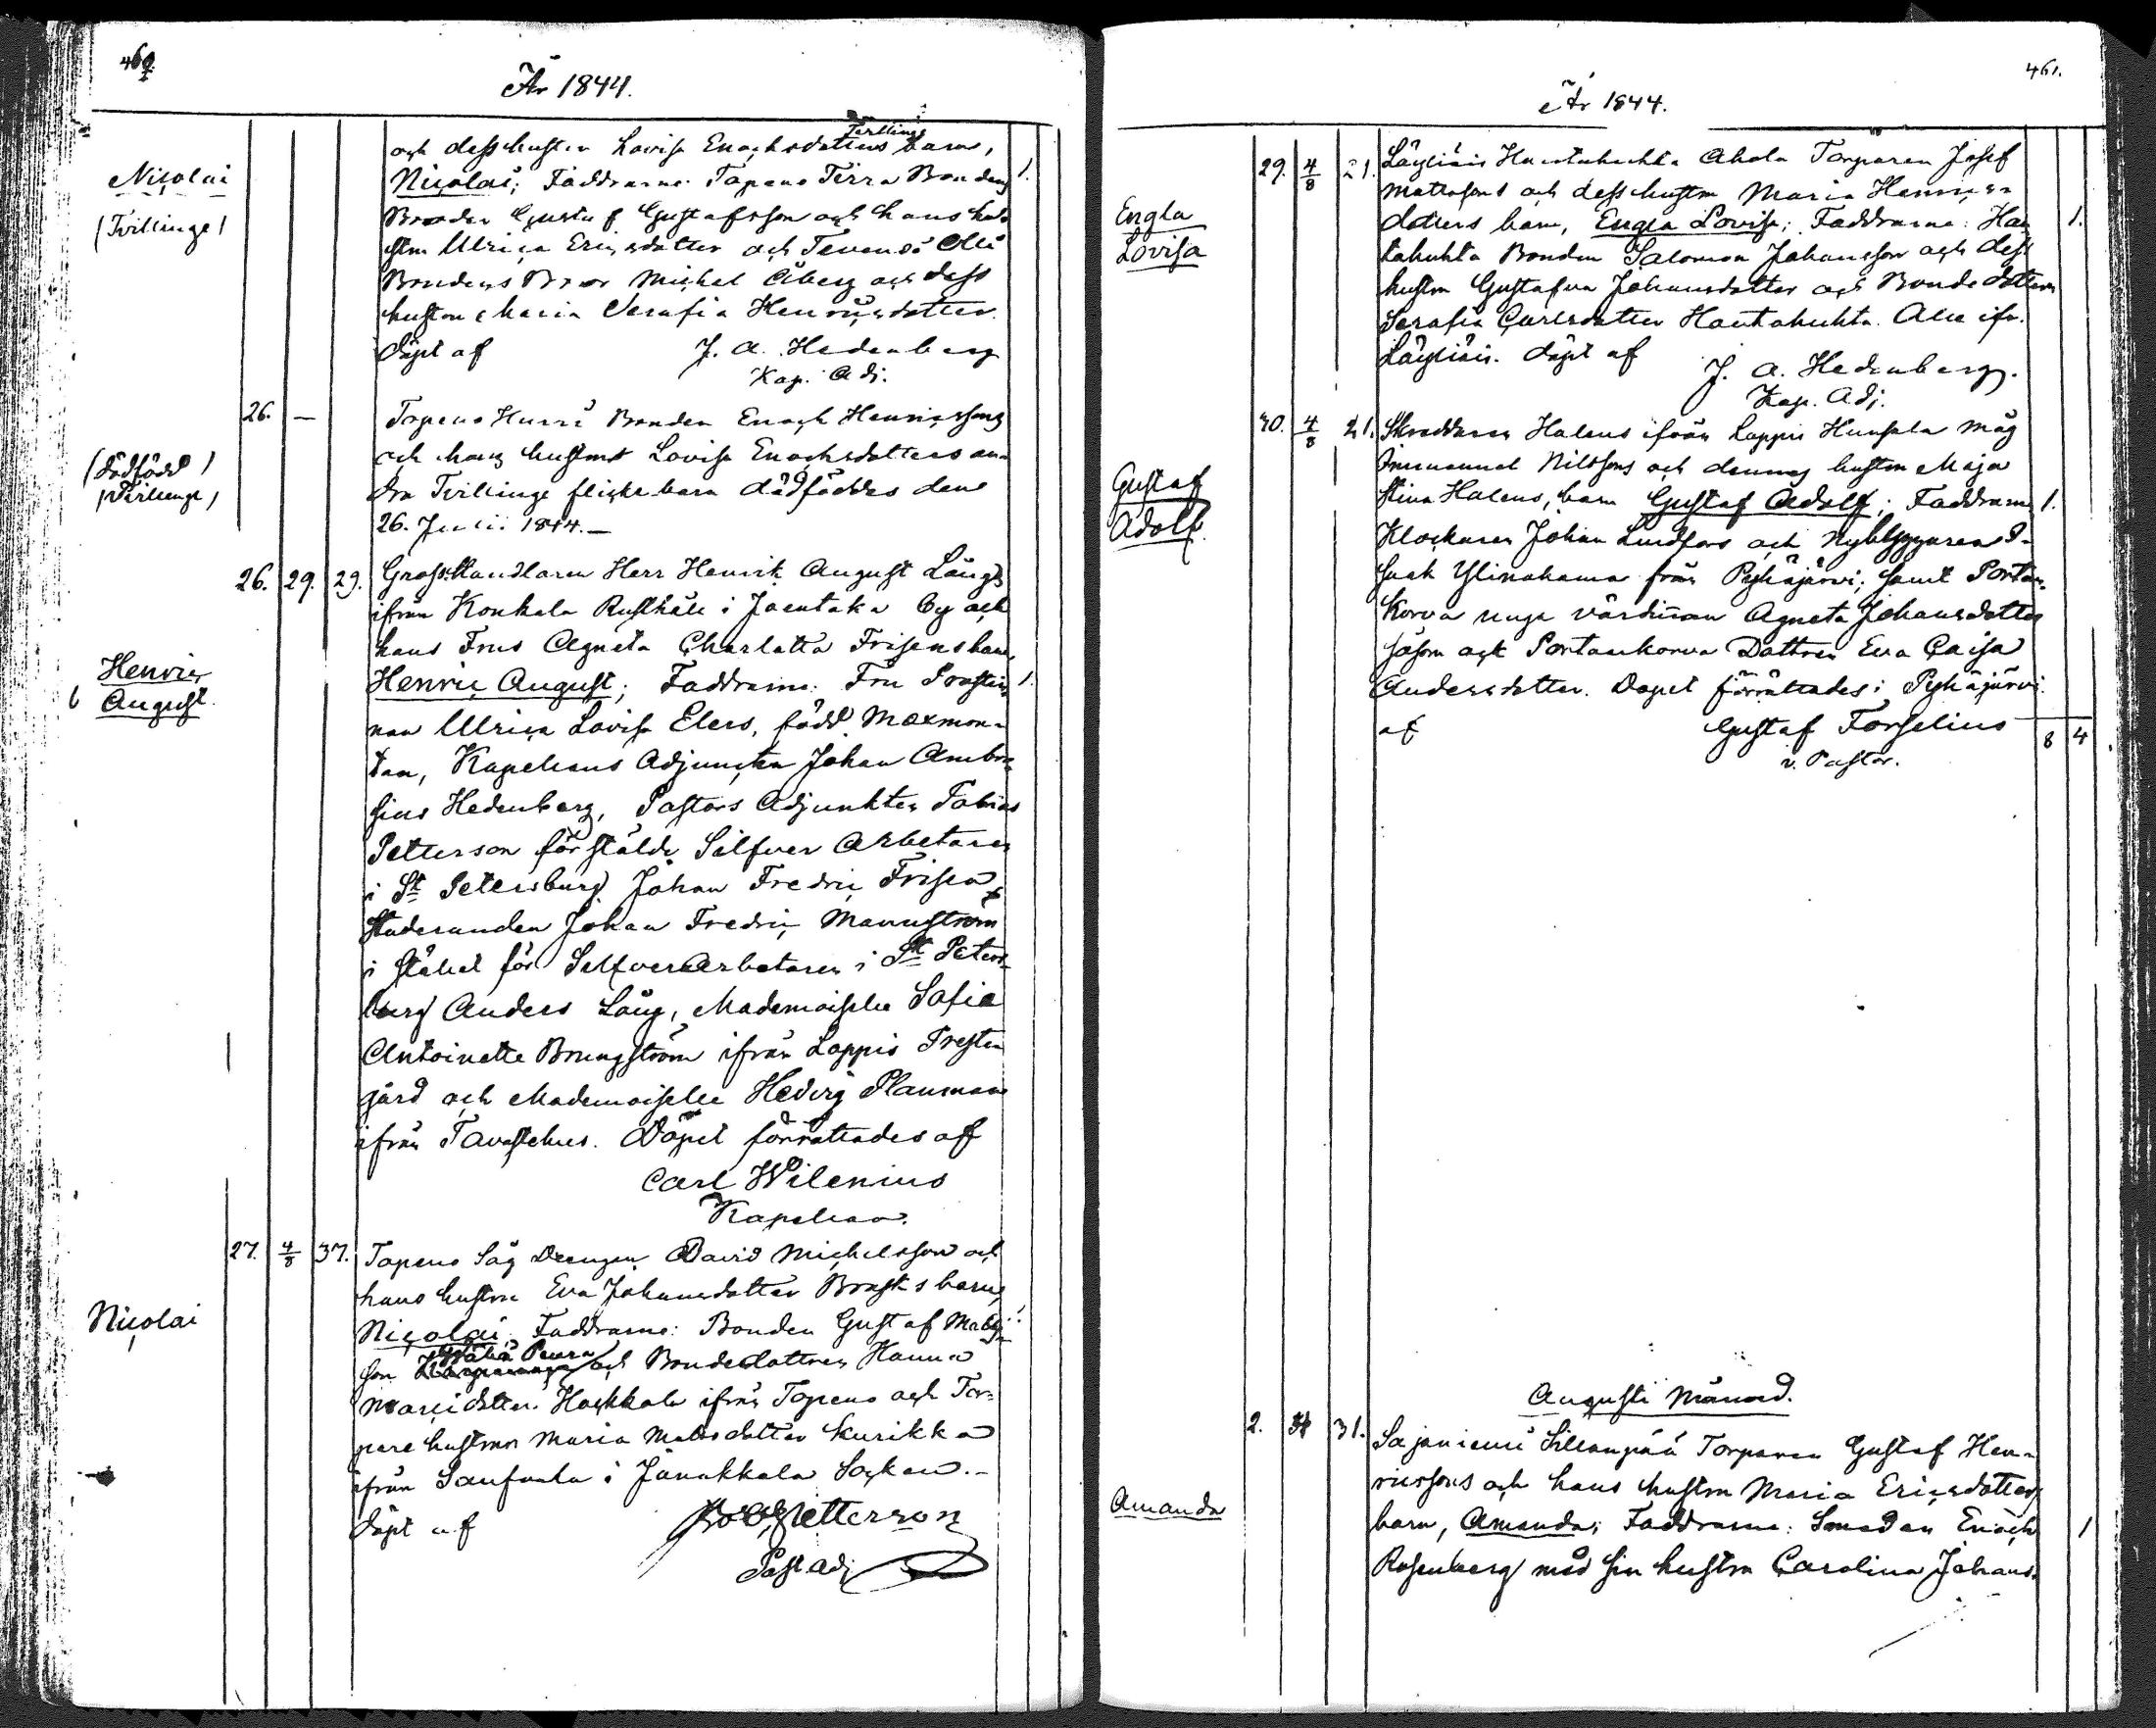 460.
År 1844.
Tvillinge
och dess hustru Lovisa Enochsdotters barn,
Nicolai
Nicolai; Faddrarne: Topeno Tirra Bondens 1.
(Tvillinge)
Broder Gustaf Gustafsson och hans hu-
stru Ulrica Ericsdotter och Tevensö Olli
Bondens Bror Michel Åberg och dess
hustru Maria Serafia Henricsdotter.
döpt af J. A. Hedenberg
Kap. Adj.
26. — Topeno Hurri Bonden Enoch Henricssons
(dödfödd)
och hans hustrus Lovisa Enochsdotters an-
(Tvillinge)
dra Tvillinge flickebarn dödföddes den
26. Julii 1844.—
26. 29. 29. Grosshandlaren Herr Henrik August Långs
ifrån Konkala Rusthåll i Joentaka by och
hans Frus Agneta Charlotta Frisens barn,
Henric
Henric August; Faddrarne: Fru Prostin- 1.
August.
nan Ulrica Lovisa Elers, född Maxmon-
tan, Kapellans Adjuncten Johan Ambro-
sius Hedenberg, Pastors Adjunkten Tobias
Petterson för stälde Silfver Arbetaren
i St Petersburg Johan Fredric Frisen,
Studeranden Johan Fredric Mannström
i stället för Silfverarbetaren i St Peters-
burg Anders Lång, Mademoiselle Sofia
Antoinette Brungström ifrån Loppis Preste
gård och Mademoiselle Hedvig Plauman
ifrån Tavastehus. Döpet förrättades af
Carl Wilenius
Kapellan.
27. 4/8 37. Topeno Såg Drengen David Michelsson och
hans hustru Eva Johansdotter Brasks barn,
Nicolai
Nicolai; Faddrarne: Bonden Gustaf Matts- 1
Peura
son och Bondedottren Hanna
dotter Hackkala ifrån Topeno och Tor-
pare hustrun Maria Matsdotter Kurikka
ifrån i Janakkala Socken.-
döpt af Petterson
Past Adj

461.
År 1844.
29. 4/8 21. Läyliäis Hautahuhta Ahola Torparen Josef
Mattssons och dess hustru Maria Henrics-
Engla
dotters barn, Engla Lovisa; Faddrarne: Hau- 1.
Lovisa
tahuhta Bonden Salomon Johansson och dess
hustru Gustafva Johansdotter och Bondedottern
Serafia Carlsdotter Hautahuhta. Alle ifr.
Läyliäis. döpt af J. A. Hedenberg.
Kap. Adj.
30. 4/8 21. Skreddaren Halens ifrån Loppis Hunsala måg
Immanuel Nilssons och dennes hustru Maja
Gustaf
Stina Halens, barn Gustaf Adolf; Faddrarne 1.
Adolf.
Klockaren Johan Lindfors och Nybyggaren I-
saak Ylinahama från Pyhäjärvi; samt Portan-
korva unga värdinan Agneta Johansdotter
såsom ock Portankorva Dottren Eva Caisa
Andersdotter. Dopet förrättades i Pyhäjärvi
af Gustaf Forselius
v. Pastor. 8 4
Augusti Månad.
2. 31. Sajaniemi Sillanpää Torparen Gustaf Hen-
ricssons och hans hustru Maria Ericsdotters
Amanda
barn, Amanda; Faddrarne: Smeden Enoch 1
Rosenberg med sin hustru Carolina Johans-